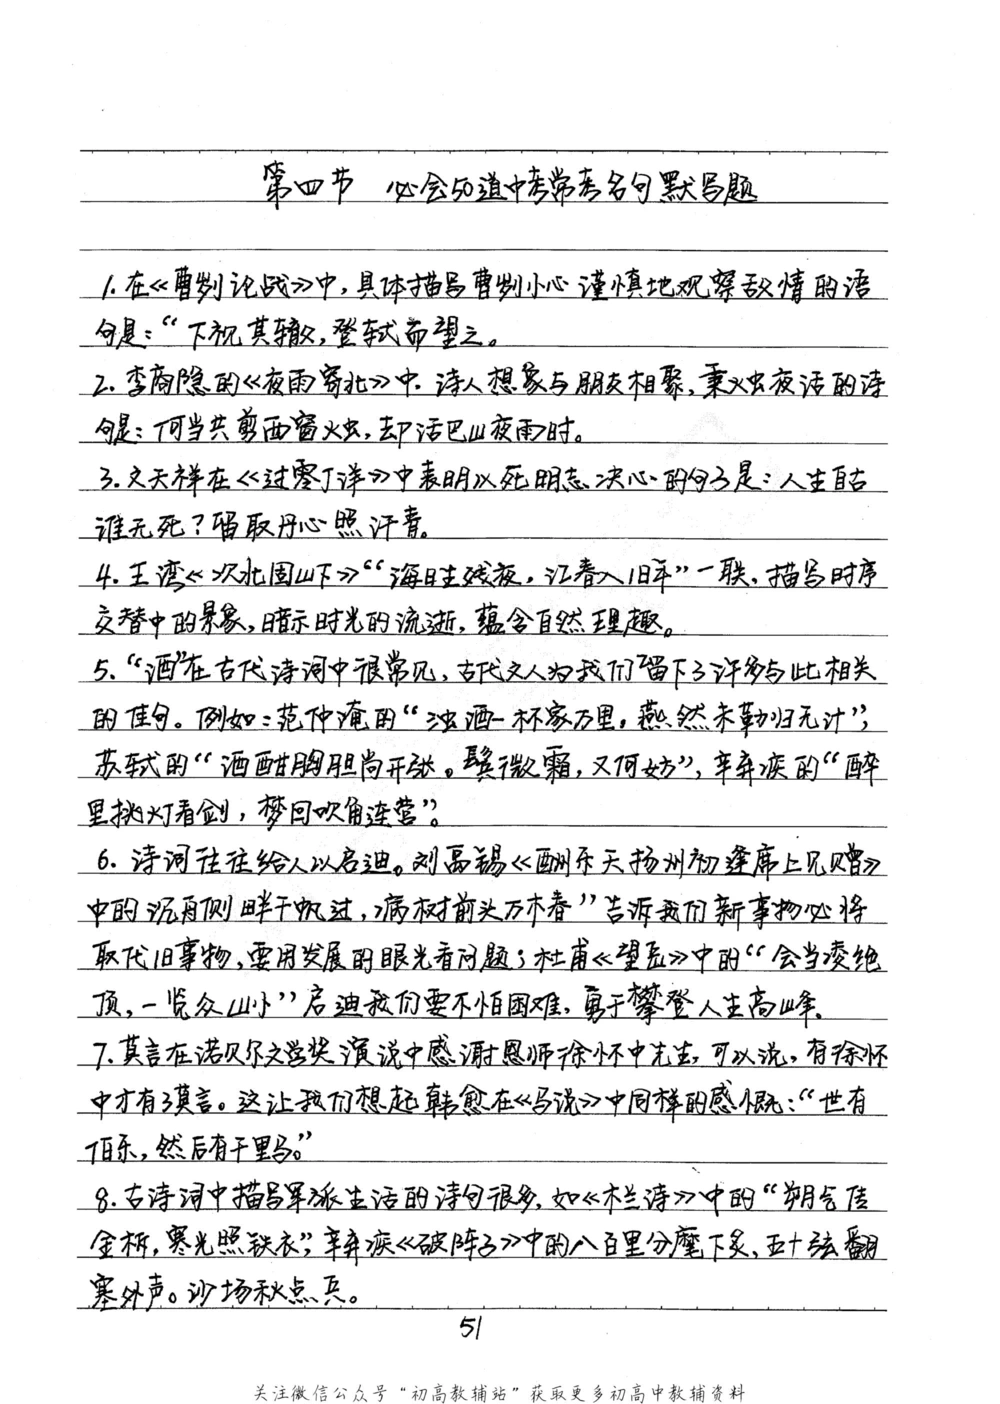 第四节 必会50道中考常考名句默写题
1.在《曹刿论战》中,具体描写曹刿小心谨慎地观察敌情的语
句是:“下视其辙,登轼而望之。
2.李商隐的《夜雨寄北》中.诗人想象与朋友相聚,秉烛夜话的诗
句是:何当共剪西窗烛,却话巴山夜雨时。
3.文天祥在《过零丁洋》中表明以死明志决心的句子是:人生自古
谁无死?留取丹心照汗青。
4.王湾《次北固山下》“海日生残夜,江春入旧年”一联,描写时序
交替中的景象,暗示时光的流逝,蕴含自然理趣。
5.“酒”在古代诗词中很常见,古代文人为我们留下了许多与此相关
的佳句。例如:范仲淹的“浊酒一杯家万里,燕然未勒归无计”,
苏轼的“酒酣胸胆尚开张。鬓微霜,又何妨”,辛弃疾的“醉
里挑灯看剑,梦回吹角连营”。
6.诗词往往给人以启迪。刘禹锡《酬乐天扬州初逢席上见赠》
中的沉舟侧畔千帆过,病树前头万木春”告诉我们新事物必将
取代旧事物,要用发展的眼光看问题;杜甫《望岳》中的“会当凌绝
顶,一览众山小”启迪我们要不怕困难,勇于攀登人生高峰.
7.莫言在诺贝尔文学奖演说中感谢恩师徐怀中先生,可以说,有徐怀
中才有了莫言。这让我们想起韩愈在《马说》中同样的感慨:“世有
伯乐,然后有千里马。”
8.古诗词中描写军旅生活的诗句很多,如《木兰诗》中的“朔气传
金柝,寒光照铁衣”,辛弃疾《破阵子》中的八百里分麾下炙,五十弦翻
塞外声。沙场秋点兵。
51
关注微信公众号“初高教辅站”获取更多初高中教辅资料